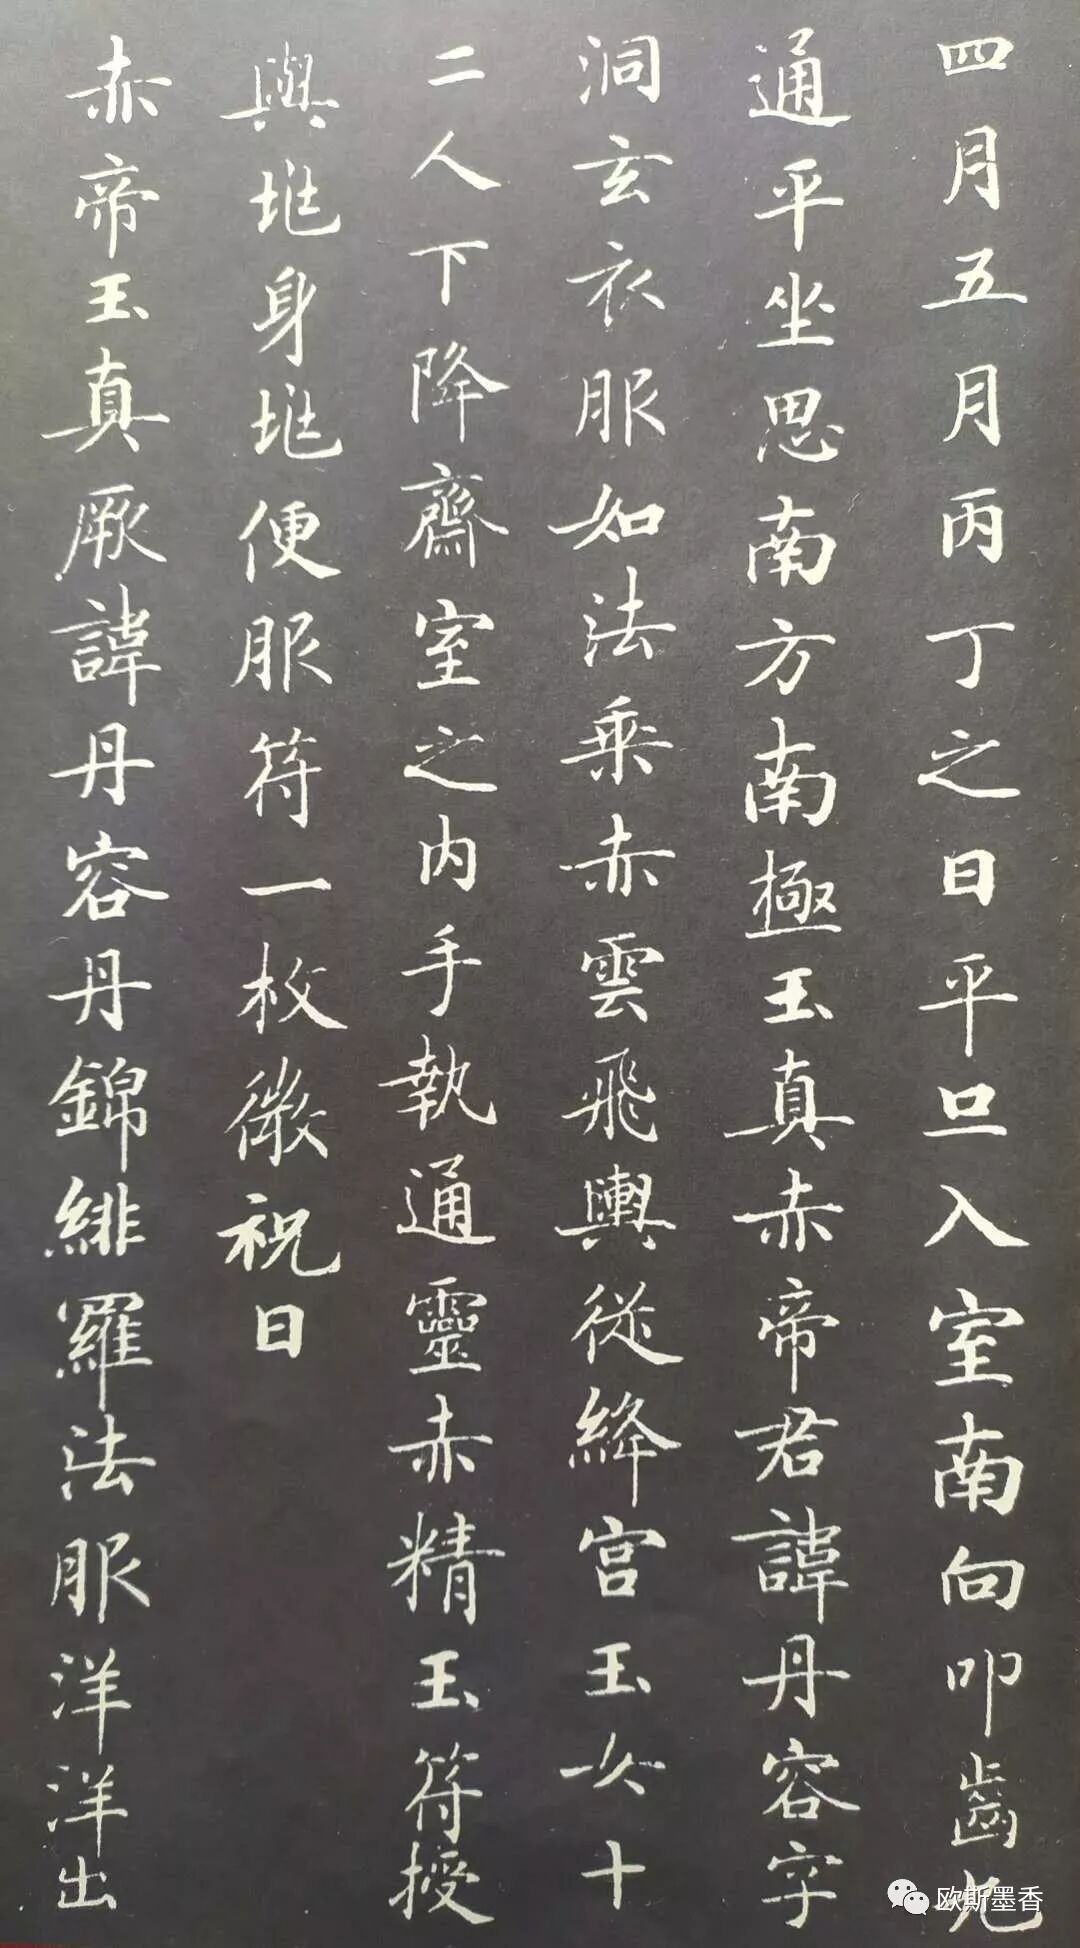 四月五月丙丁之日平旦入室南向叩齒九
通平坐思南方南極玉真赤帝君諱丹容字
洞玄衣服如法乘赤雲飛輿従絳宫玉女十
二人下降齋室之内手執通靈赤精玉符授
與垗身垗便服符一枚微祝曰
赤帝玉真厥諱丹容丹錦緋羅法服洋洋出
欧斯墨香